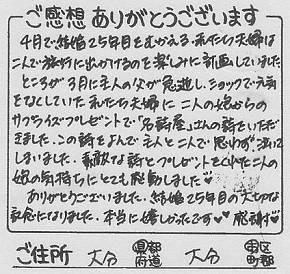 ご感想ありがとうございます
4月で結婚25年目をむかえる、私たち夫婦は
二人で旅行に出かけるのを楽しみに計画していました
ところが3月に主人の父が急逝し、ショックで元気
をなくしていた私たち夫婦に二人の娘からの
サプライズプレゼントで「名詩屋」さんの詩をいただ
きました。この詩をよんで主人と二人で思わず泣いて
しまいました。素敵な詩とプレゼントをくれた二人の
娘の気持ちにとても感動しました♥
ありがとうございました。結婚25年目の大切な
記念になりました。本当に嬉しかったです♥ 感謝♥
ご住所 大分 都道府県 大分 市区町郡